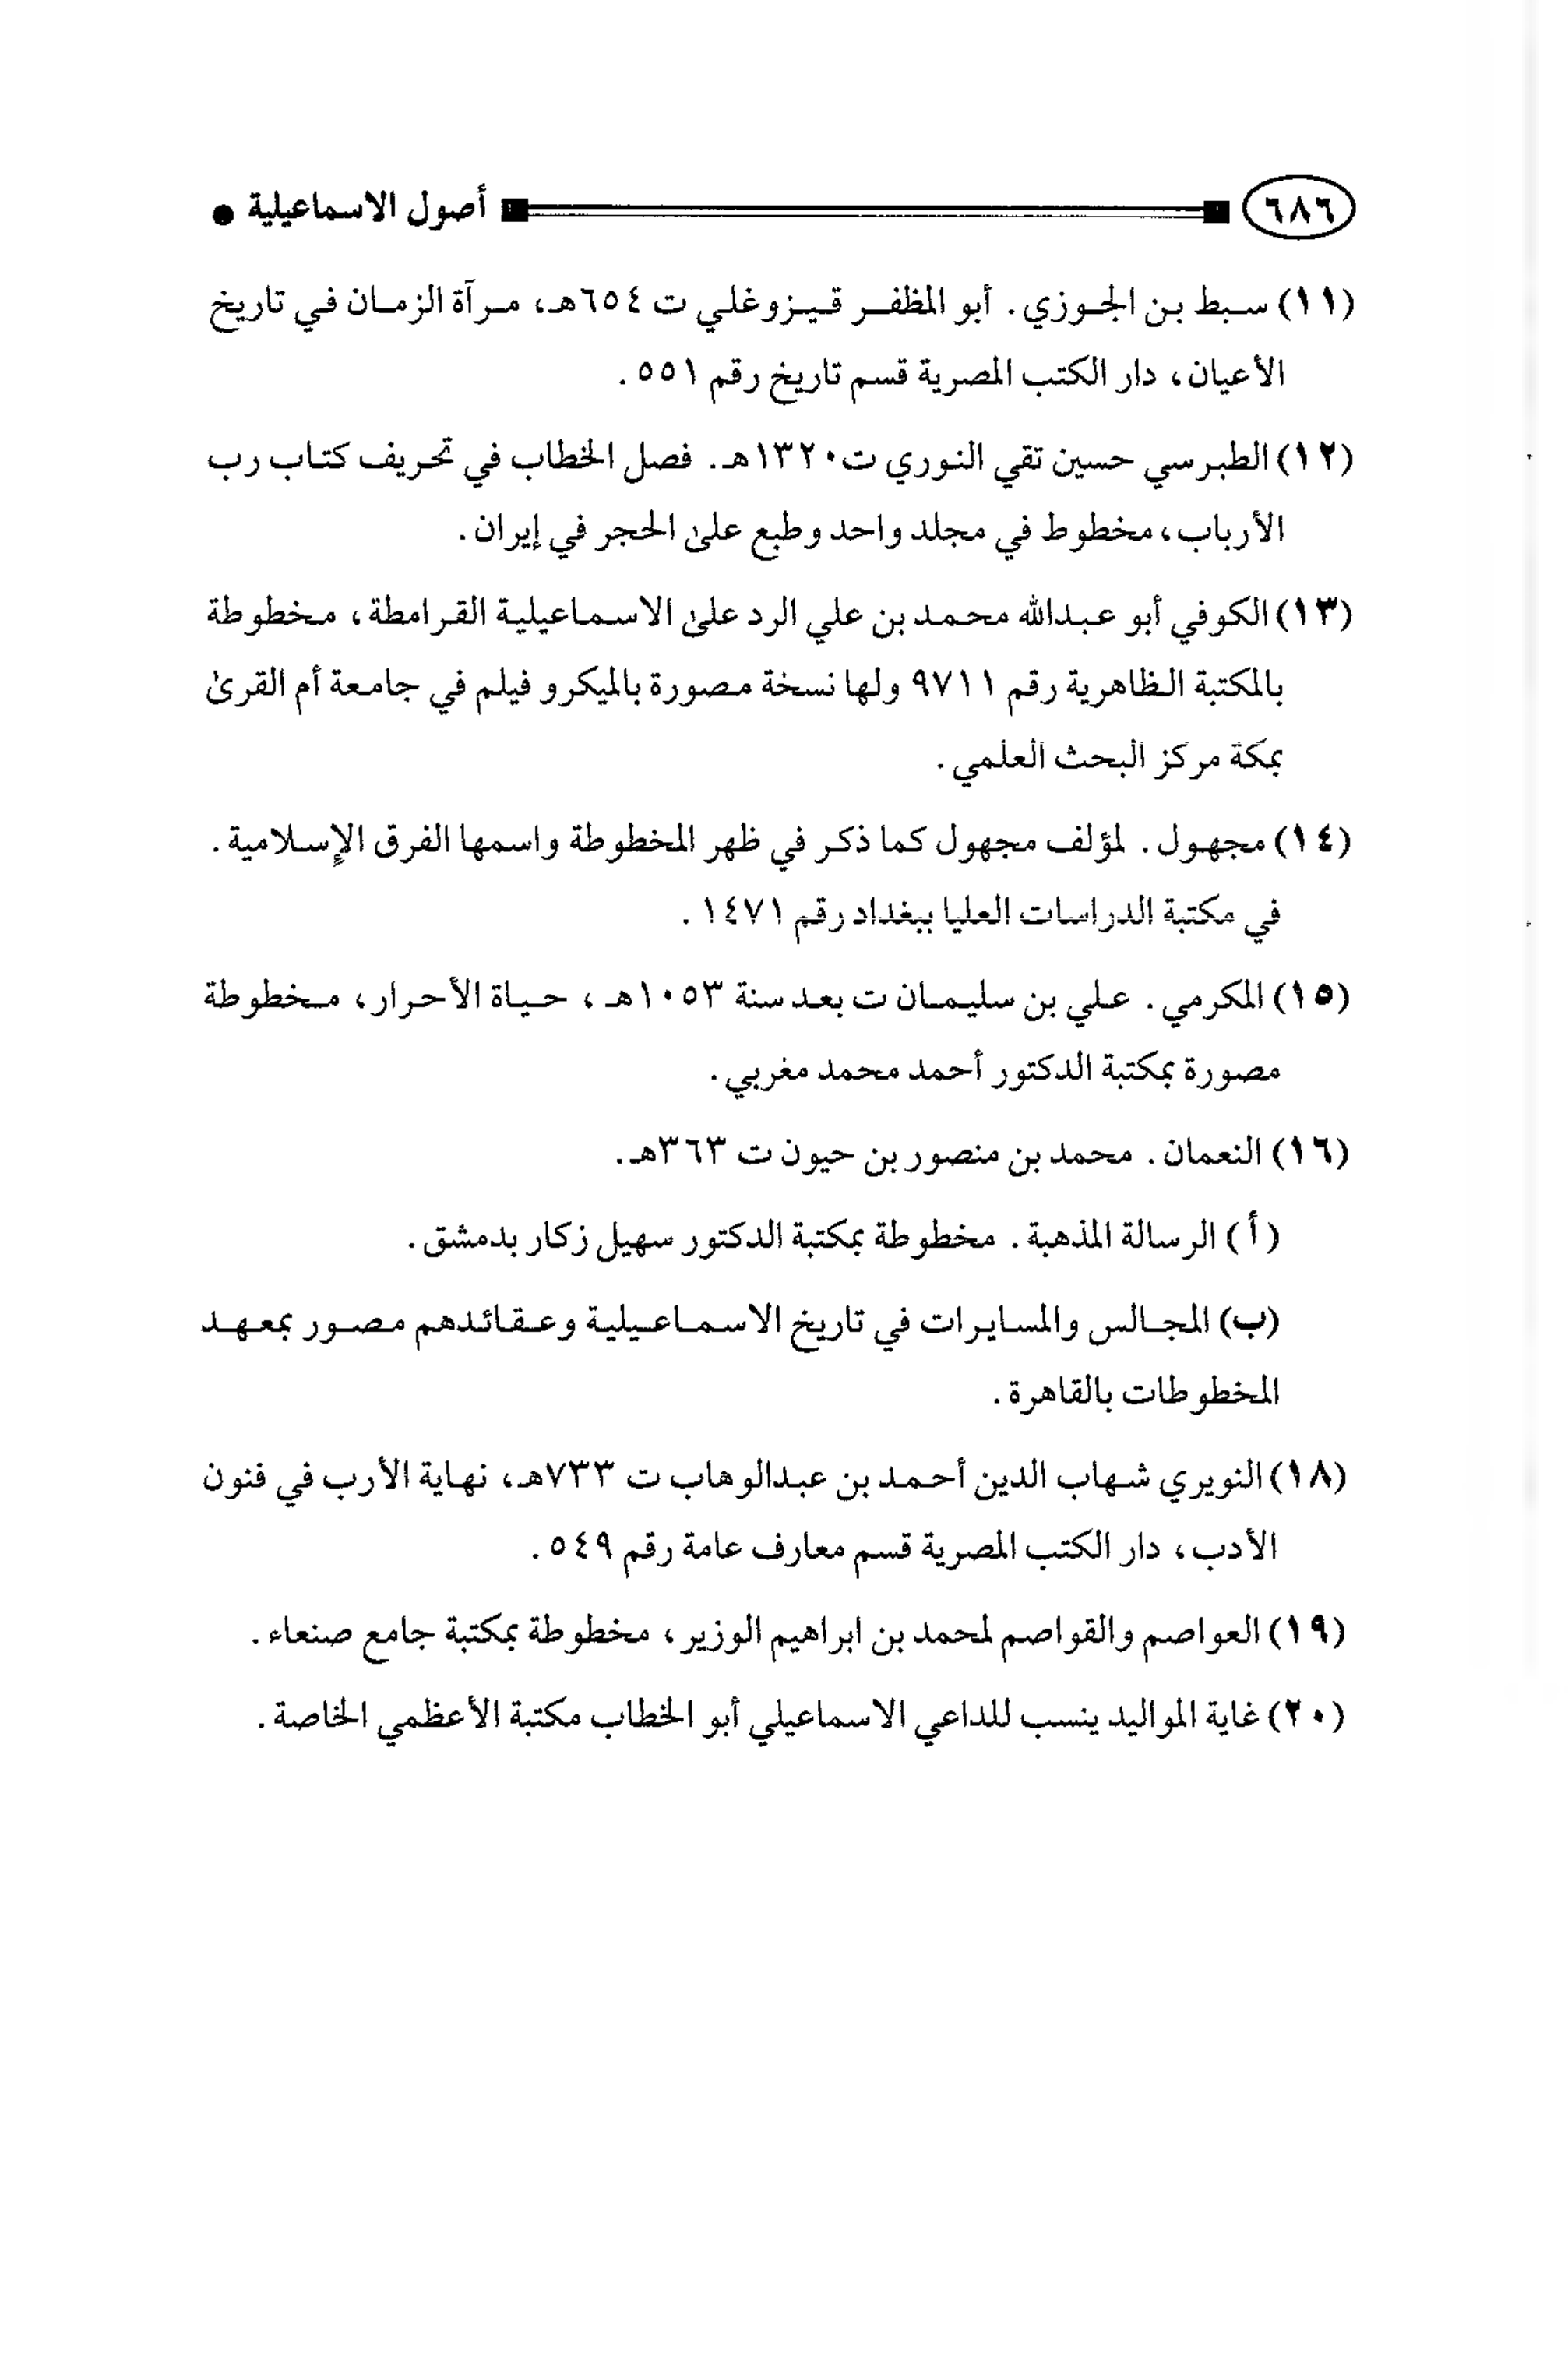 ٦٨٦ أصول الاسماعيلية ●
(١١) سبط بن الجوزي. أبو المظفر قيزوغلي ت ٦٥٤هـ، مرآة الزمان في تاريخ
الأعيان، دار الكتب المصرية قسم تاريخ رقم ٥٥١.
(١٢) الطبرسي حسين تقي النوري ت١٣٢٠هـ. فصل الخطاب في تحريف كتاب رب
الأرباب، مخطوط في مجلد واحد وطبع علىٰ الحجر في إيران.
(١٣) الكوفي أبو عبدالله محمد بن علي الرد علىٰ الاسماعيلية القرامطة، مخطوطة
بالمكتبة الظاهرية رقم ٩٧١١ ولها نسخة مصورة بالميكرو فيلم في جامعة أم القرىٰ
بمكة مركز البحث العلمي.
(١٤) مجهول. لمؤلف مجهول كما ذكر في ظهر المخطوطة واسمها الفرق الإسلامية.
في مكتبة الدراسات العليا ببغداد رقم ١٤٧١.
(١٥) المكرمي. علي بن سليمان ت بعد سنة ١٠٥٣هـ، حياة الأحرار، مخطوطة
مصورة بمكتبة الدكتور أحمد محمد مغربي.
(١٦) النعمان. محمد بن منصور بن حيون ت ٣٦٣هـ.
(أ) الرسالة المذهبة. مخطوطة بمكتبة الدكتور سهيل زكار بدمشق.
(ب) المجالس والمسايرات في تاريخ الاسماعيلية وعقائدهم مصور بمعهد
المخطوطات بالقاهرة.
(١٨) النويري شهاب الدين أحمد بن عبدالوهاب ت ٧٣٣هـ، نهاية الأرب في فنون
الأدب، دار الكتب المصرية قسم معارف عامة رقم ٥٤٩.
(١٩) العواصم والقواصم لمحمد بن ابراهيم الوزير، مخطوطة بمكتبة جامع صنعاء.
(٢٠) غاية المواليد ينسب للداعي الاسماعيلي أبو الخطاب مكتبة الأعظمي الخاصة.